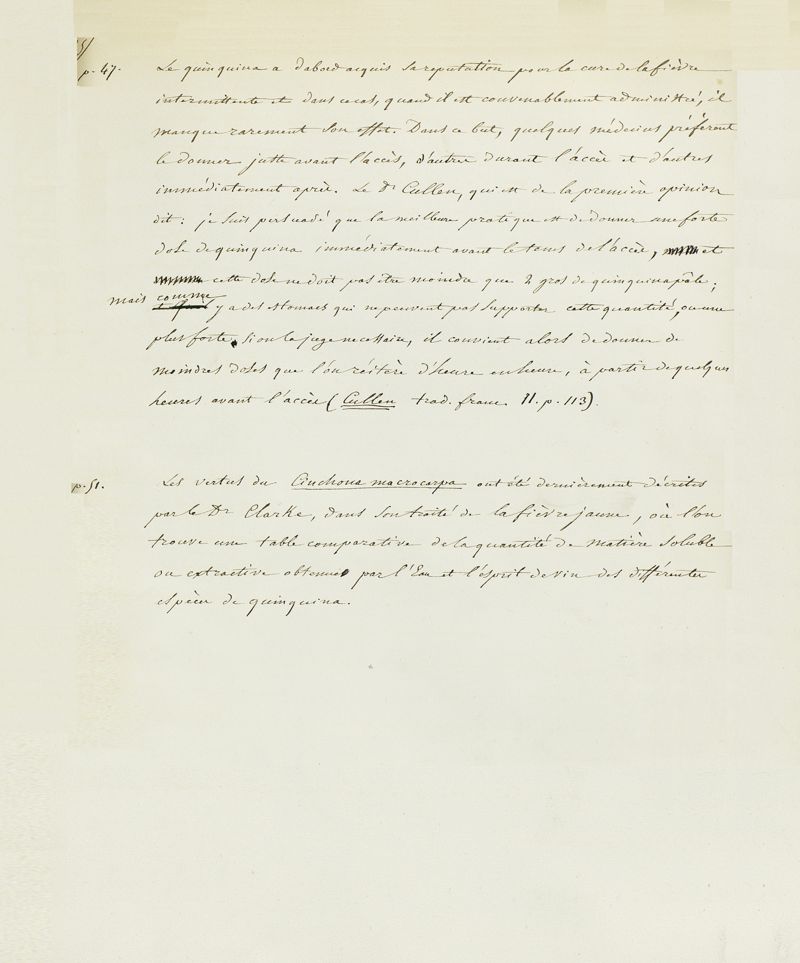 5/
p. 47. Le quinquina a d'abord acquis sa reputation pour la cure de la fièvre
intermittente et dans ce cas, quand il est convenablement administré, il
manque rarement son effet. Dans ce but, quelques médecins préfèrent
le donner juste avant l'accès, d'autres durant l'accès et d'autres
immédiatement après. Le Dr Cullen, qui est de la première opinion
dit: je suis persuadé que la meilleure pratique est de donner une forte
dose de quinquina immédiatement avant le tems de l'accès, et
cette dose ne doit pas être moindre que 2 gros de quinquina pâle;
mais comme
y a des estomacs qui ne peuvent pas supporter cette quantité, ou une
plus forte, si on le juge necessaire, il convient alors de donner de
moindres doses que l'on réitère d'heure en heure, à partir de quelques
heures avant l'accès (Cullen trad. franc. II. p. 113).
p. 51. Les vertus du Cinchona macrocarpa ont été dernièrement décrites
par le Dr Clarke, dans son traité de la fièvre jaune, où l'on
trouve une table comparative de la quantité de matière soluble
ou extractive obtenue par l'Eau et l'esprit de vin des différentes
espèces de quinquina.